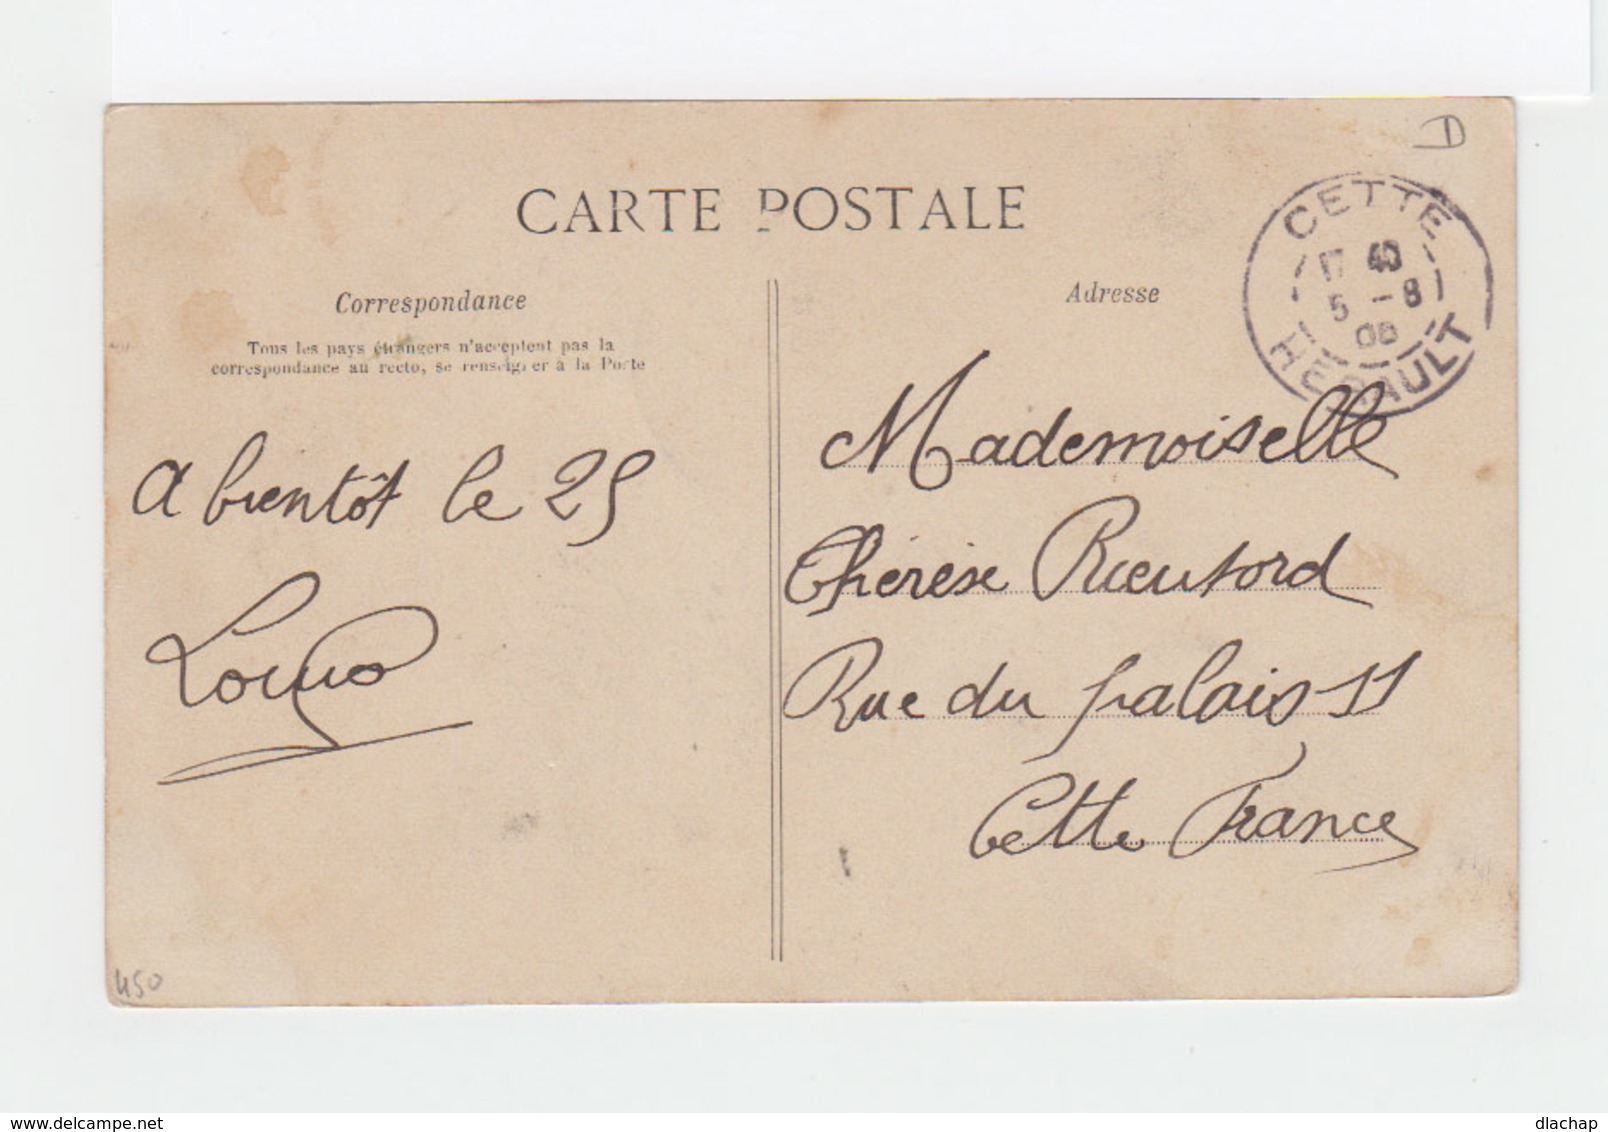 CARTE POSTALE
Correspondance
Tous les pays étrangers n'acceptent pas la
correspondance au recto, se renseigner à la Poste
A bientôt le 25
Adresse
CETTE
17 40
5 - 8
HERAULT
Mademoiselle
Thérèse Rieutord
Rue du palais 11
Cette France
D
450
delcampe.net
dlachap